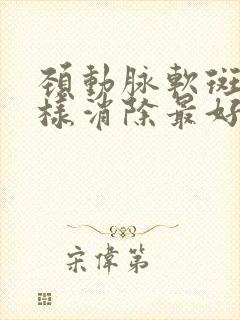 頸動脉軟斑
樣消除最好
宋偉第